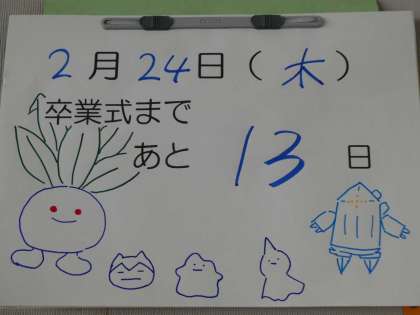 2月24日(木)
卒業式まで
あと 13 日